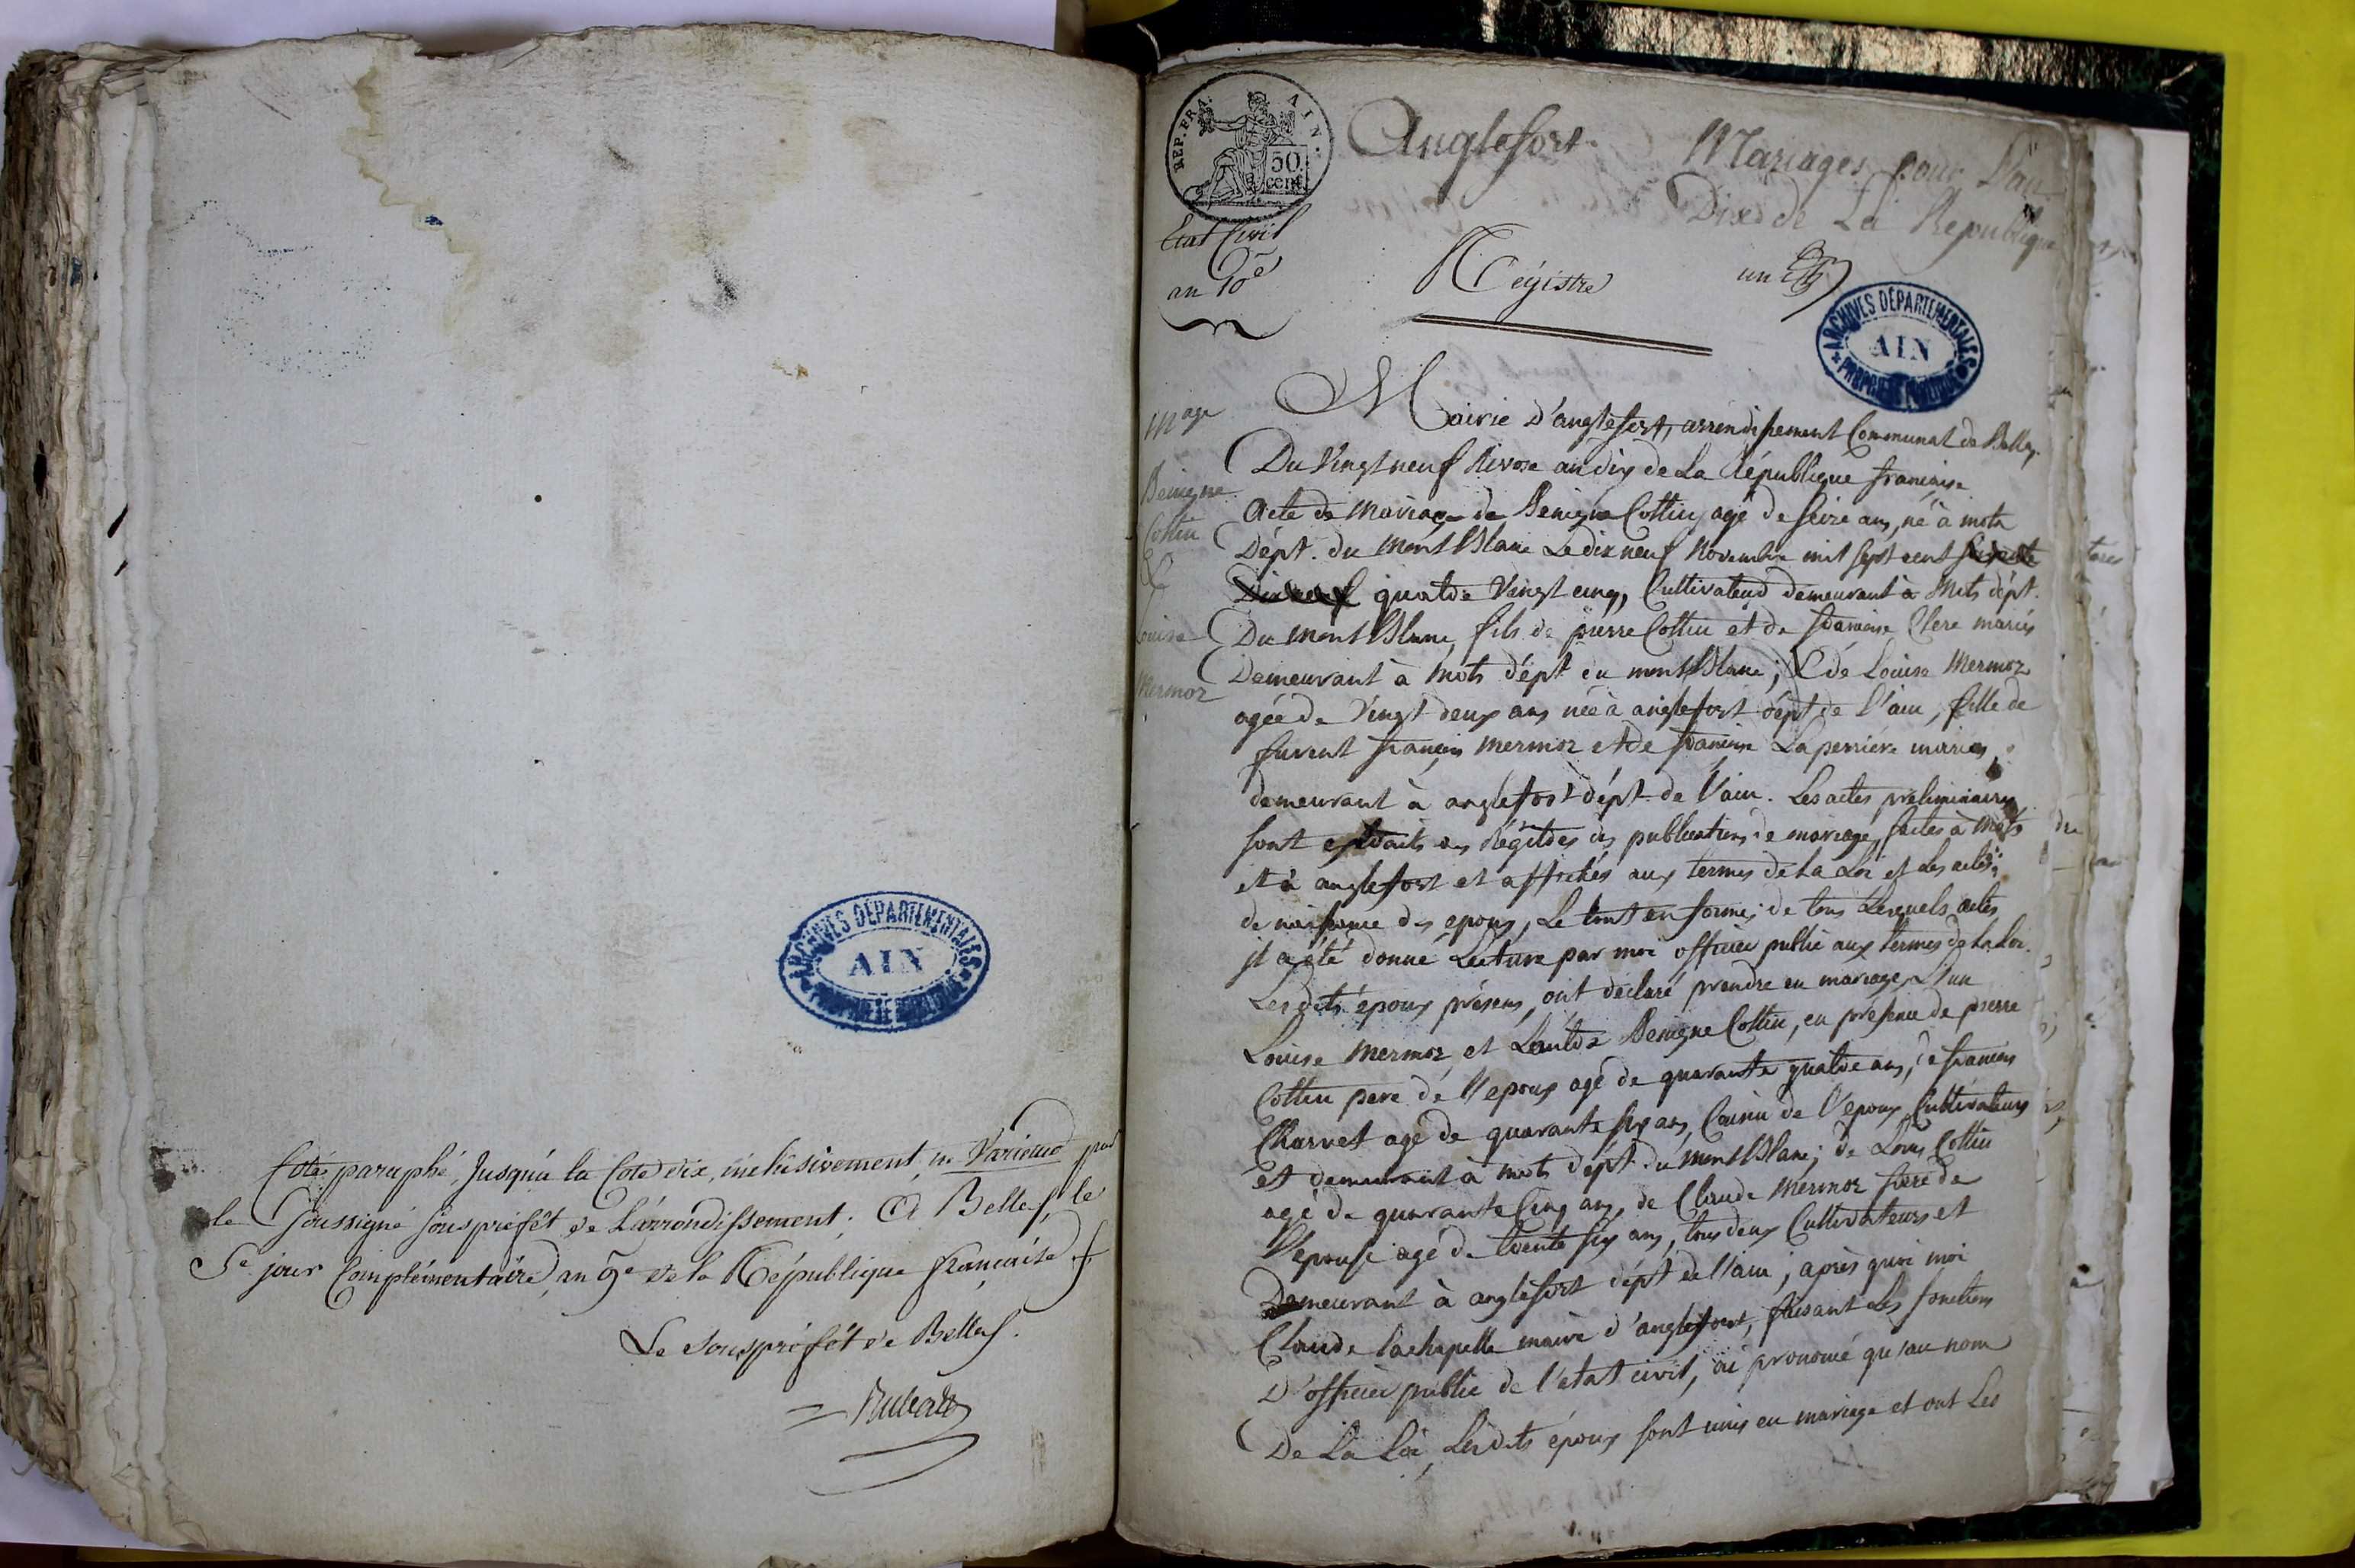 ARCHIVES DÉPARTEMENTALES
AIN
PROPRIÉTÉ PUBLIQUE
Coté paraphé, Jusqu'à la Cote dix, inclusivement, ne Varietur par
le soussigné souspréfet de L'arrondissement. A Belley, le
5e jour Complémentaire, an 9e de la République française
Le souspréfet de Belley.
REP. FRA.
AIN.
50
cent.
Anglefort.
Mariages pour L'an
Dix de La République
Etat Civil
an 10e
Régistre
un
ARCHIVES DÉPARTEMENTALES
AIN
PROPRIÉTÉ PUBLIQUE
Mage
Benigne
Collin
&
Louise
Mermoz
Mairie d'anglefort, arrondissement Communal de Belley.
Du Vingt neuf Nivose an dix de La République française
Acte de Mariage de Benigne Collin, agé de seize ans, né à mots
Dépt. du Mont Blanc Le dix neuf Novembre mil sept cent
quatre Vingt cinq, Cultivateur demeurant à Mots dépt.
Du Mont Blanc, fils de pierre Collin et de françoise Clerc mariés
Demeurant à Mots dépt du mont Blanc; & de Louise Mermoz
agée de Vingt deux ans née à anglefort dépt de l'ain, fille de
furent françois mermoz et de françoise Laperrière mariés,
demeurant à anglefort dépt de l'ain. Les actes préliminaires
sont extraits des Régitres des publications de mariage, faites à Mots
et à anglefort et affichés aux termes de La Loi et Les actes
de naissance des epoux, Le tout en forme; de tous Lesquels actes
il a été donné Lecture par moi officier public aux termes de la Loi.
Lesdits époux présens, ont déclaré prendre en mariage, L'un
Louise Mermoz, et L'autre Benigne Collin, en présence de pierre
Collin pere de l'epoux agé de quarante quatre ans, de françois
Charvet agé de quarante six ans, Cousin de l'epoux, Cultivateurs
et demeurant à mots dépt du mont Blanc; de Louis Collin
agé de quarante Cinq ans, de Claude Mermoz frere de
l'epouse agé de trente six ans, tous deux Cultivateurs et
Demeurant à anglefort dépt de l'ain; après quoi moi
Claude Lachapelle maire d'anglefort, faisant les fonctions
D'officier public de l'etat civil, ai prononcé qu'au nom
De La Loi, Lesdits époux sont unis en mariage et ont Les